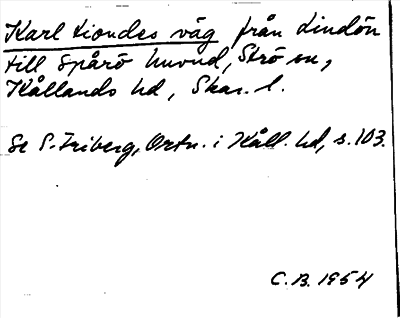 Karl tiondes väg från Lindön
till Spårö huvud, Strö sn,
Kållands hd, Skar. l.
Se S. Friberg, Ortn. i Kåll. hd, s. 103.
C.B. 1954